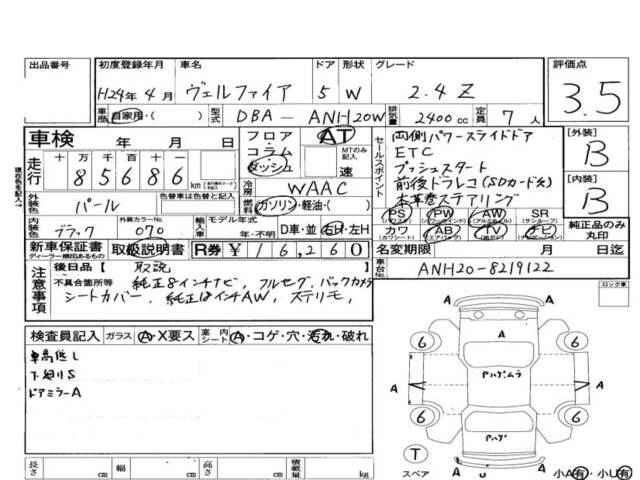 出品番号 初度登録年月 車名 ドア 形状 グレード 評価点
H24年 4月 ヴェルファイア 5 W 2.4Z 3.5
車歴 自家用・( ) 型式 DBA-ANH20W 排気量 2400cc 定員 7人
車検 年 月 日
フロア・コラム・ダッシュ AT MTのみ記入 速
セールスポイント
両側パワースライドドア
ETC
プッシュスタート
前後ドラレコ(SDカード欠)
本革巻ステアリング
[外装] B
[内装] B
現在色を記入→
走行 十 万 千 百 十 一
85686 km
冷房 WAAC
外装色 パール 色替車は色替と記入
燃料 ガソリン・軽油・( )
PS (パワステ) PW (パワーウインド) AW (アルミホイール) SR (サンルーフ)
カワ (カワシート) AB (エアバック) TV ナビ
純正品のみ丸印
内装色 ブラック 外装カラーNo. 070 輸入車 モデル年式 年・不明 D車・並 右H・左H
新車保証書 ディーラー捺印あるもの 取扱説明書 R券 ¥16,260
名変期限 月 日迄
注意事項 後日品【 取説 】
不具合箇所等 純正8インチナビ, フルセグ, バックカメラ
シートカバー, 純正18インチAW, ステリモ,
車台No. ANH20-8219122
ロック車
検査員記入 ガラス A・X要ス 室内シート A・コゲ・穴・汚れ・破れ
車高低し
下廻りS
ドアミラーA
A
6 A 6
A
A Pハゲムラ A
6 6
Pハゲ
T
スペア A U 小A有・小U有
長さ cm 幅 cm 高さ cm 積載量 kg